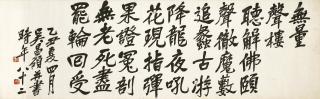 無量
聲樓
聽解佛頤
聲徹魔數
追蠡古游
降龍夜吼
花現指彈
果證冤剖
無老死盡
罷輪回受
乙丑夏四月
吳昌碩并書
時年八十二